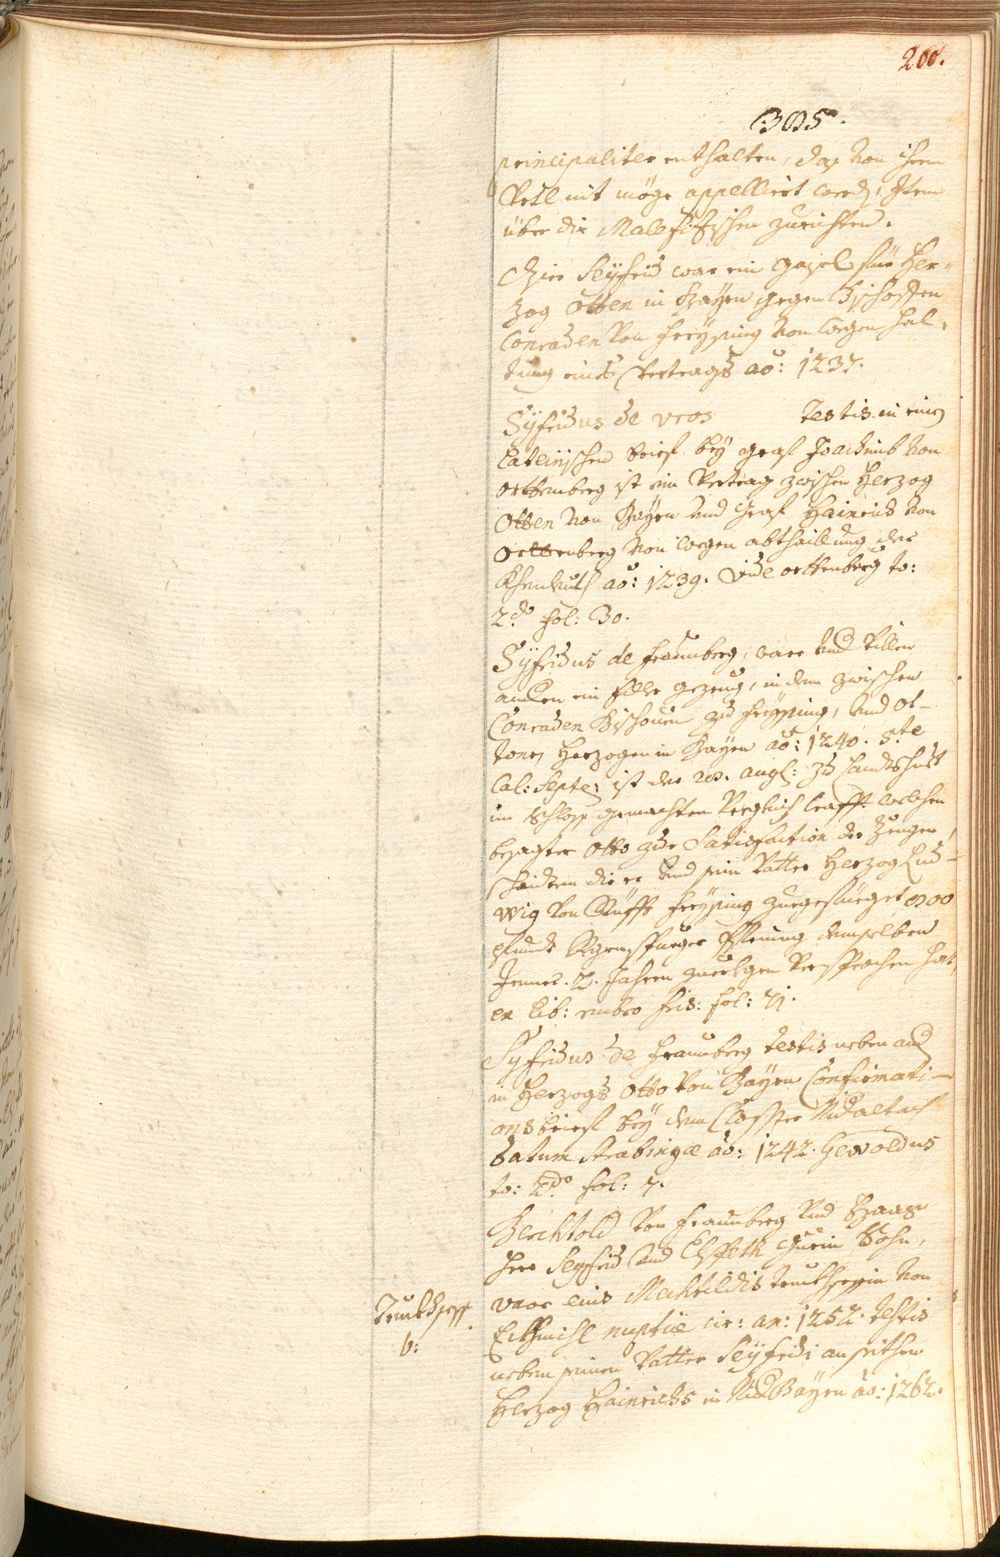 200.
305.
principaliter enthalten, das von ihrem
Vrtl nit möge appelliert werden, Item
über die Malefizischen zurichten.
Herr Seyfrid war ein Gaisel für Her-
zog Otten in Bayrn gegen Bischoffen
Conraden von Freysing von wegen hal-
tung eines Vertrags ao: 1237.
Syfridus de vros testis in einem
Lateinischen brief bey Graf Joachimb von
Orttemberg ist ein Vertrag zwischen Herzog
Otten von Bayrn und Graf Hainrich von
Orttenberg von wegen abthaillung der
ao: 1239. Vide Orttenberg to:
2do fol: 30.
Syfridus de Fraunberg, ware und villen
andern ein gezeug, in dem zwischen
Conraden Bischouen zu Freysing, und Ot-
tonen Herzogen in Bayrn ao: 1240. 8te
Cal: Septe: ist der 20. augl: zu Landtshuet
im Schloss gemachten Vergleich krafft welchem
besagter Otto zur Satisfaction der
die er und sein Vatter Herzog Lud-
wig von Stüfft Freysing zuegefüeget
pfundt Regenspurger Pfening demselben
Innner 2 Jahren zuerlgen versprochen hat,
ex lib: rubro fris: fol: 71.
Syfridus de Fraunberg testis neben and
in Herzogs Otto von Bayrn Confirmati-
ons brief bey dem Closter Nidaltach
Datum Strabingæ ao: 1242. Gewoldus
to: 2do fol: 7.
Berchtold von Fraunberg und Haag
Herr Seyfrid und Elspeth Sohn,
vxor eius Mechtildis truckhsessin von
Eckhmihl nuptiæ cir: an: 1252. testis
neben seinem Vatter Seyfrid an seithen
Herzog Hainrichs in Nid Bayrn ao: 1262.
Truckhsess
b: